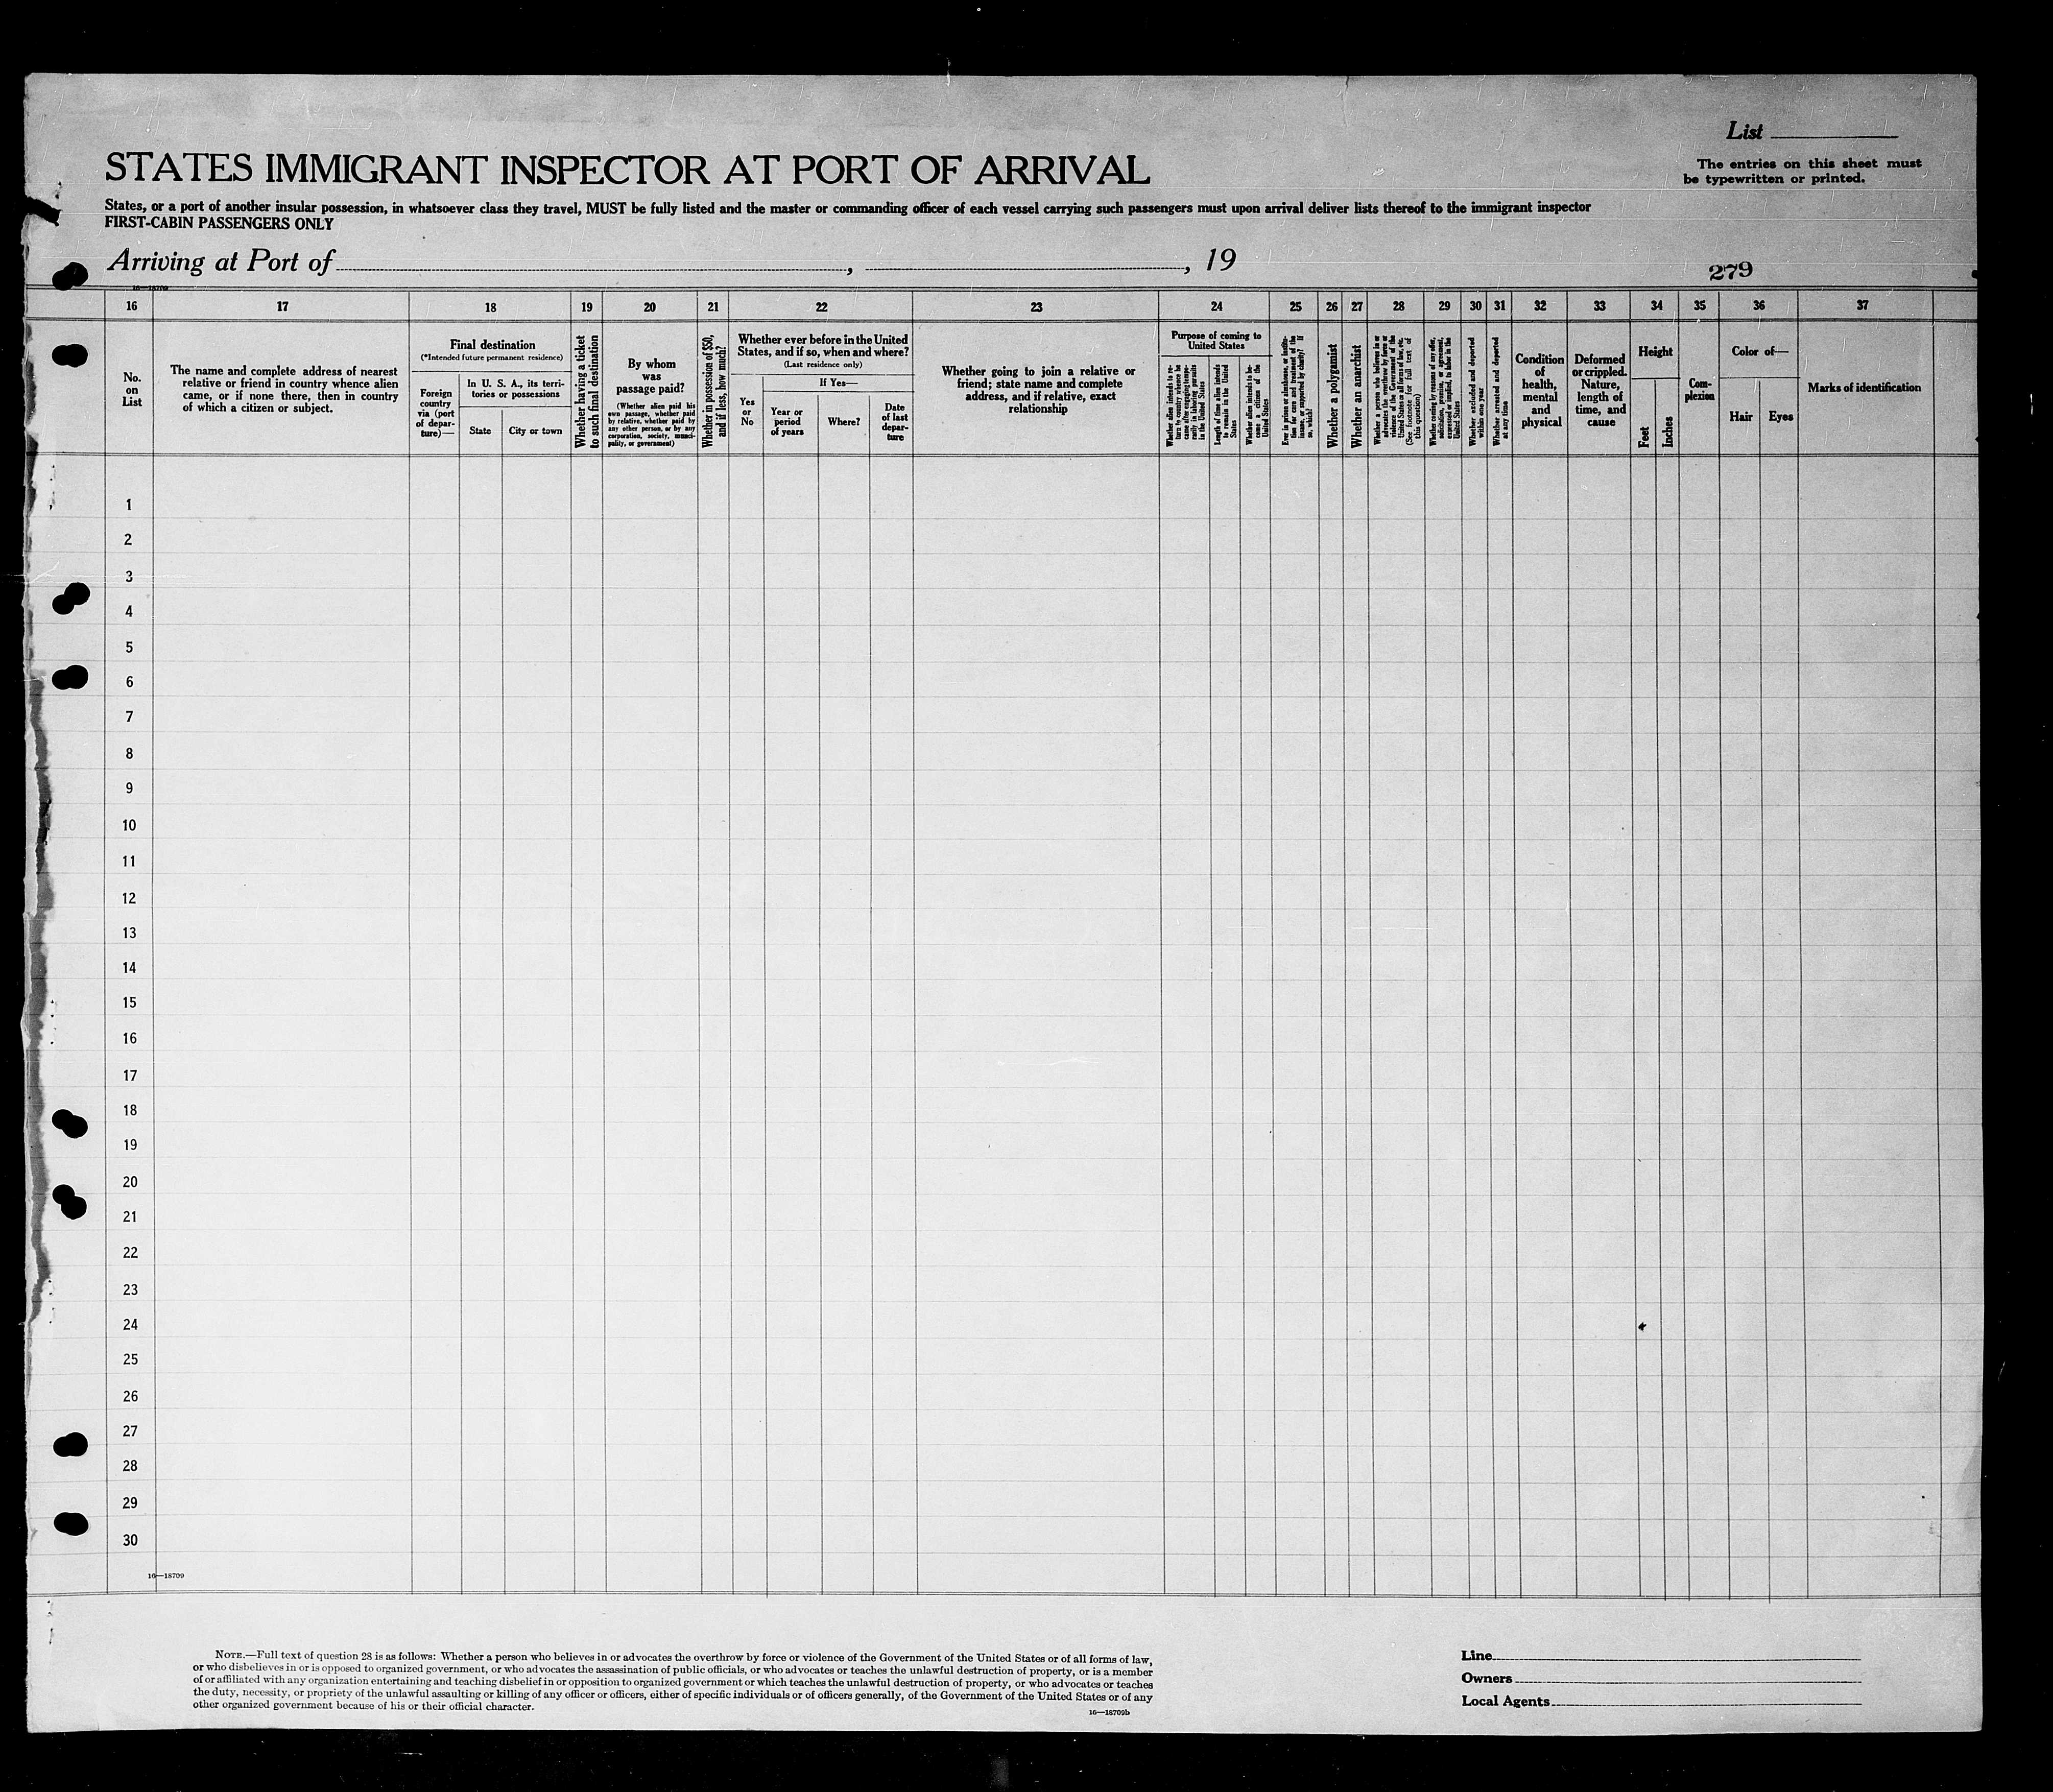 List
STATES IMMIGRANT INSPECTOR AT PORT OF ARRIVAL
The entries on this sheet must
be typewritten or printed.
States, or a port of another insular possession, in whatsoever class they travel, MUST be fully listed and the master or commanding officer of each vessel carrying such passengers must upon arrival deliver lists thereof to the immigrant inspector
FIRST-CABIN PASSENGERS ONLY
Arriving at Port of , , 19
279
16 17 18 19 20 21 22 23 24 25 26 27 28 29 30 31 32 33 34 35 36 37
No.
on
List
The name and complete address of nearest
relative or friend in country whence alien
came, or if none there, then in country
of which a citizen or subject.
Final destination
(*Intended future permanent residence)
Foreign
country
via (port
of depar-
ture)—
In U. S. A., its terri-
tories or possessions
State
City or town
Whether having a ticket
to such final destination
By whom
was
passage paid?
(Whether alien paid his
own passage, whether paid
by relative, whether paid by
any other person, or by any
corporation, society, munici-
pality, or government)
Whether in possession of $50,
and if less, how much?
Whether ever before in the United
States, and if so, when and where?
(Last residence only)
Yes
or
No
If Yes—
Year or
period
of years
Where?
Date
of last
depar-
ture
Whether going to join a relative or
friend; state name and complete
address, and if relative, exact
relationship
Purpose of coming to
United States
Whether alien intends to re-
turn to country whence he
came after engaging tempo-
rarily in laboring pursuits
in the United States
Length of time alien intends
to remain in the United
States
Whether alien intends to be-
come a citizen of the
United States
Ever in prison or almshouse, or institu-
tion for care and treatment of the
insane, or supported by charity? If
so, which?
Whether a polygamist
Whether an anarchist
Whether a person who believes in or
advocates the overthrow by force or
violence of the Government of the
United States or all forms of law, etc.
(See footnote for full text of
this question)
Whether coming by reasons of any offer,
solicitation, promise, or agreement,
expressed or implied, to labor in the
United States
Whether excluded and deported
within one year
Whether arrested and deported
at any time
Condition
of
health,
mental
and
physical
Deformed
or crippled.
Nature,
length of
time, and
cause
Height
Feet
Inches
Com-
plexion
Color of—
Hair
Eyes
Marks of identification
1
2
3
4
5
6
7
8
9
10
11
12
13
14
15
16
17
18
19
20
21
22
23
24
25
26
27
28
29
30
16—18709
NOTE.—Full text of question 28 is as follows: Whether a person who believes in or advocates the overthrow by force or violence of the Government of the United States or of all forms of law,
or who disbelieves in or is opposed to organized government, or who advocates the assassination of public officials, or who advocates or teaches the unlawful destruction of property, or is a member
of or affiliated with any organization entertaining and teaching disbelief in or opposition to organized government or which teaches the unlawful destruction of property, or who advocates or teaches
the duty, necessity, or propriety of the unlawful assaulting or killing of any officer or officers, either of specific individuals or of officers generally, of the Government of the United States or of any
other organized government because of his or their official character.
16—18709b
Line
Owners
Local Agents